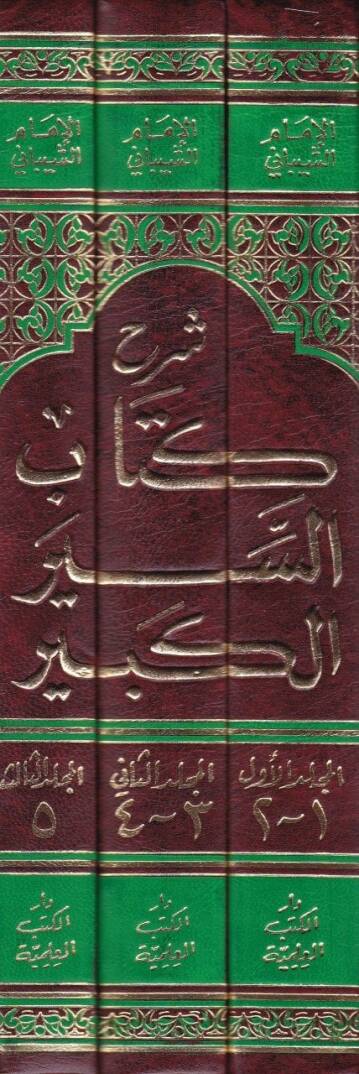 الإمام الشيباني
الإمام الشيباني
الإمام الشيباني
شرح
كتاب
السير
الكبير
المجلد الأول
١ - ٢
المجلد الثاني
٣ - ٤
المجلد الثالث
٥
دار الكتب العلمية
دار الكتب العلمية
دار الكتب العلمية